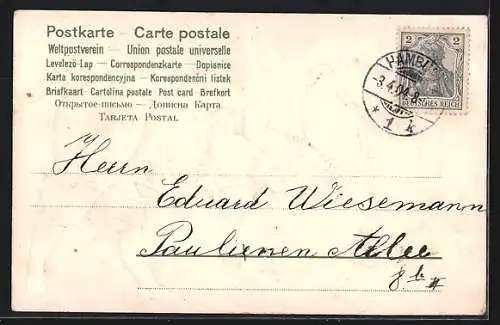 Postkarte — Carte postale
Weltpostverein — Union postale universelle
Levelező-Lap — Correspondenzkarte — Dopisnice
Karta korespondencyjna — Korespondenční listek
Briefkaart — Cartolina postale — Post card — Brefkort
Открытое-письмо — Дописна Карта
TARJETA POSTAL
2 2
DEUTSCHES REICH
HAMBURG
-3.4.04.8-
* 1 k
Herrn
Eduard Wiesemann
Paulienen Allee
8 b II